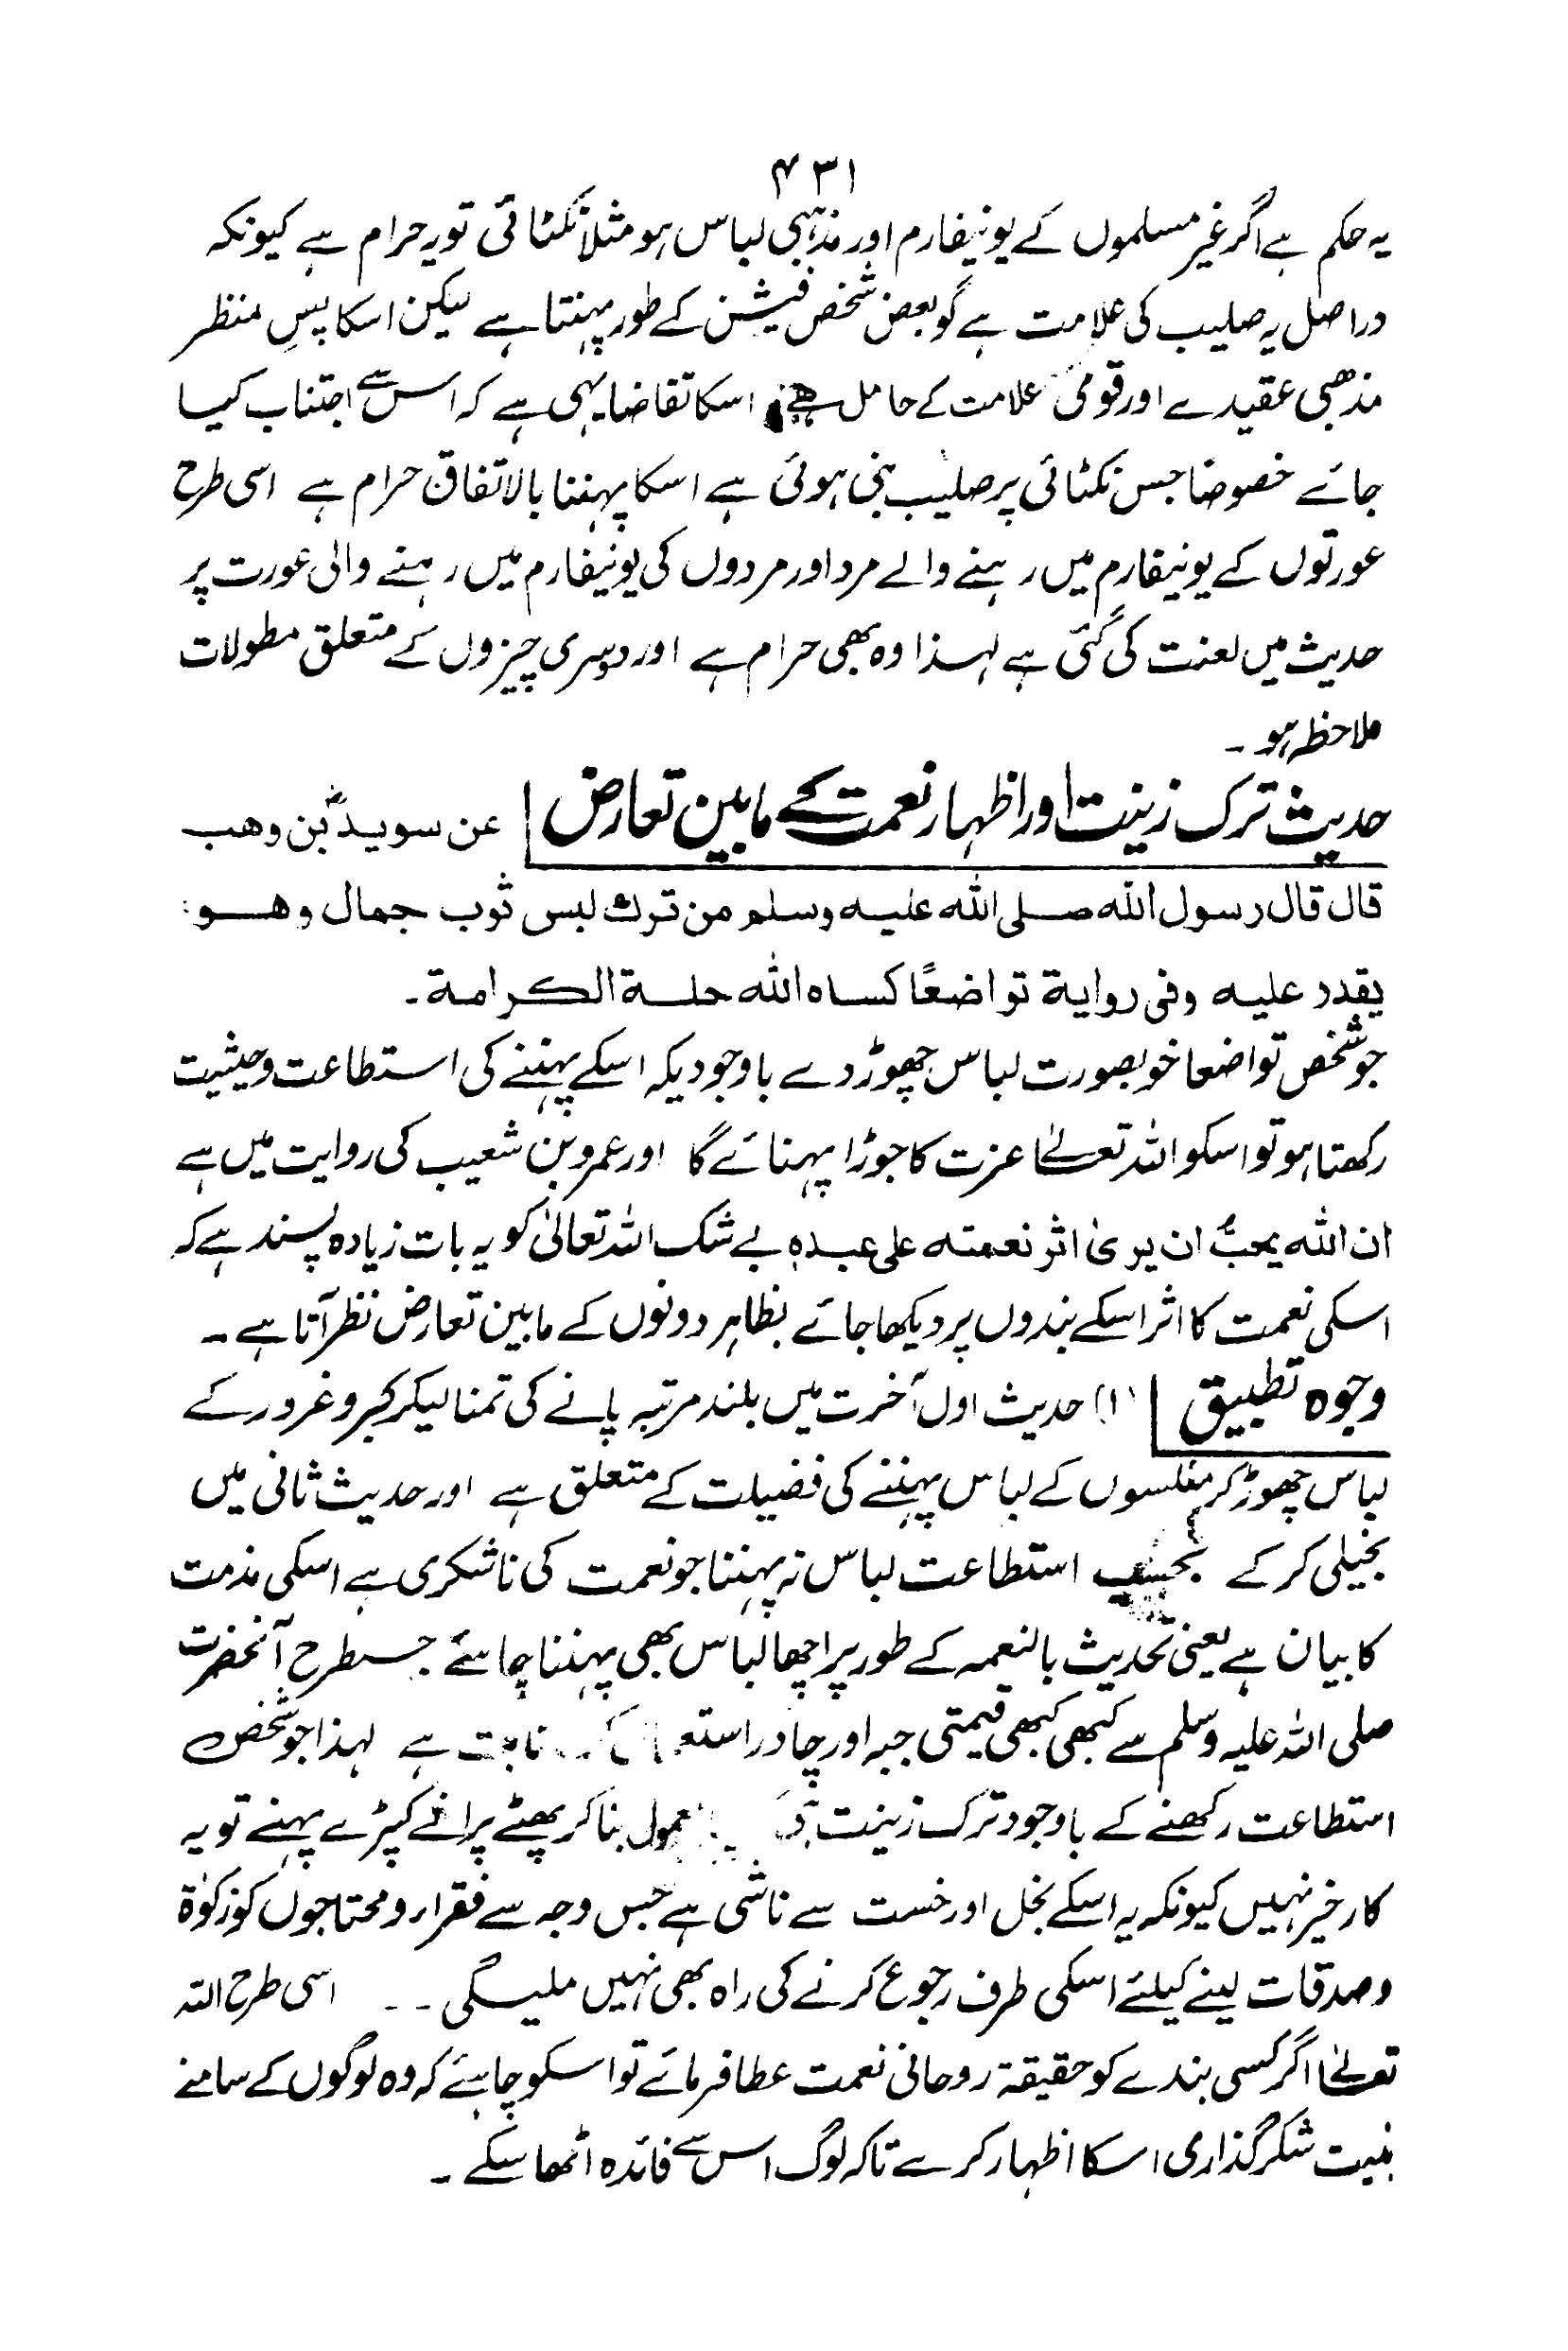 ۴۳۱
یہ حکم ہے اگر غیر مسلموں کے یونیفارم اور مذہبی لباس ہو مثلاً نکٹائی تو یہ حرام ہے کیونکہ
دراصل یہ صلیب کی علامت ہے گو بعض شخص فیشن کے طور پہنتا ہے لیکن اسکا پسِ منظر
مذھبی عقیدے اور قومی علامت کے حامل ہے اسکا تقاضا یہی ہے کہ اس سے اجتناب کیا
جائے خصوصًا جس نکٹائی پر صلیب بنی ہوئی ہے اسکا پہننا بالاتفاق حرام ہے اسی طرح
عورتوں کے یونیفارم میں رہنے والے مرد اور مردوں کی یونیفارم میں رہنے والی عورت پر
حدیث میں لعنت کی گئی ہے لہٰذا وہ بھی حرام ہے اور دوسری چیزوں کے متعلق مطولات
ملاحظہ ہو ۔
حدیث ترک زینت اور اظہار نعمت کے مابین تعارض عن سویدؓ بن وھب
قال قال رسول اللہ صلی اللہ علیہ وسلم من ترك لبس ثوب جمال وھو
یقدر علیہ وفی روایة تواضعًا کساہ اللہ حلة الکرامة ۔
جو شخص تواضعا خوبصورت لباس چھوڑ دے باوجودیکہ اسکے پہننے کی استطاعت وحیثیت
رکھتا ہو تو اسکو اللہ تعالےٰ عزت کا جوڑا پہنائے گا اور عمرو بن شعیب کی روایت میں ہے
ان اللہ یحبُّ ان یریٰ اثر نعمتہ علی عبدہٖ بے شک اللہ تعالیٰ کو یہ بات زیادہ پسند ہے کہ
اسکی نعمت کا اثر اسکے بندوں پر دیکھا جائے بظاہر دونوں کے مابین تعارض نظر آتا ہے ۔
وجوہ تطبیق (۱) حدیث اول آخرت میں بلند مرتبہ پانے کی تمنا لیکر کبر و غرور کے
لباس چھوڑ کر مفلسوں کے لباس پہننے کی فضیلت کے متعلق ہے اور حدیث ثانی میں
بخیلی کر کے بحسب استطاعت لباس نہ پہننا جو نعمت کی ناشکری ہے اسکی مذمت
کا بیان ہے یعنی تحدیث بالنعمہ کے طور پر اچھا لباس بھی پہننا چاہئے جسطرح آنحضرت
صلی اللہ علیہ وسلم سے کبھی کبھی قیمتی جبہ اور چادر ثابت ہے لہذا جو شخص
استطاعت رکھنے کے باوجود ترک زینت معمول بنا کر پھٹے پرانے کپڑے پہنے تو یہ
کار خیر نہیں کیونکہ یہ اسکے بخل اور خست سے ناشی ہے جس وجہ سے فقراء و محتاجوں کو زکوٰۃ
و صدقات لینے کیلئے اسکی طرف رجوع کرنے کی راہ بھی نہیں ملیگی ۔ ۔ اسی طرح اللہ
تعالےٰ اگر کسی بندے کو حقیقۃ روحانی نعمت عطا فرمائے تو اسکو چاہئے کہ وہ لوگوں کے سامنے
بنیت شکر گذاری اسکا اظہار کرے تاکہ لوگ اس سے فائدہ اٹھا سکے ۔